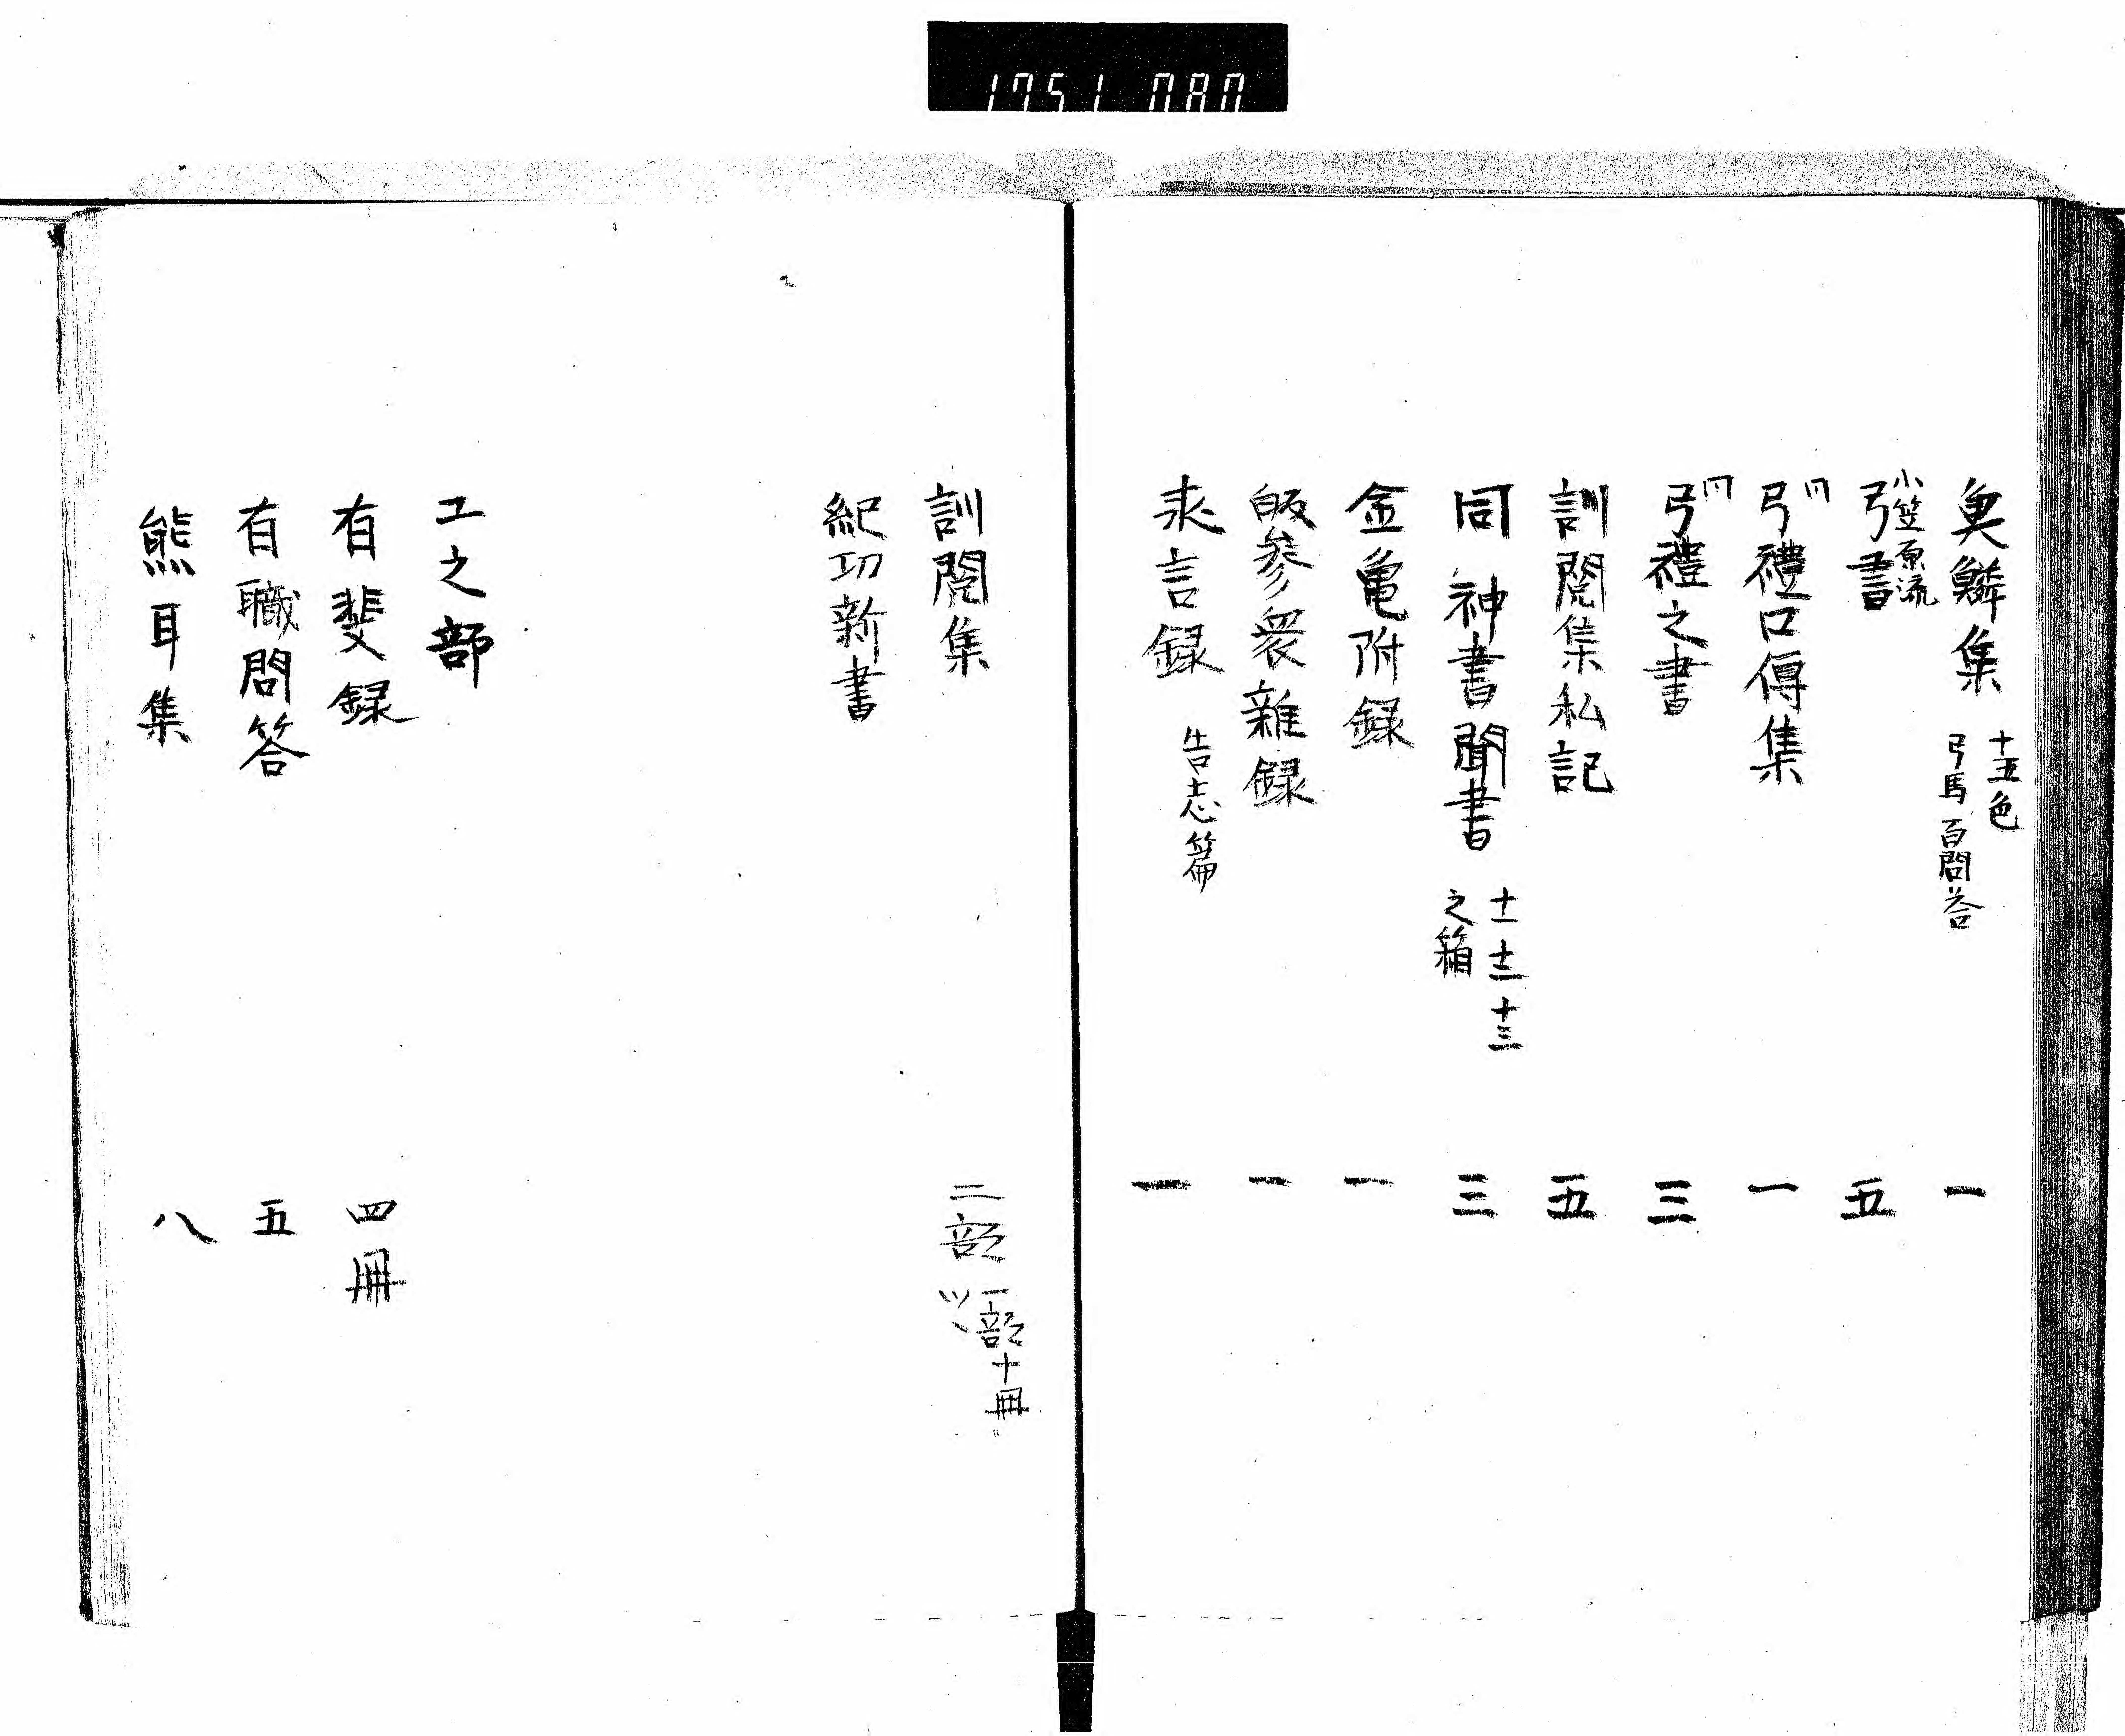 1751 080
魚鱗集 十五色 弓馬百問答 一
小笠原流 弓書 五
同 弓禮口傳集 一
同 弓禮之書 三
訓閲集私記 五
同神書聞書 十一 十二 十三 之箱 三
金亀附録 一
皈参衆雑録 一
言録 告志篇 一
訓閲集 二部 一部十冊ツヽ
紀功新書
工之部
有斐録 四冊
有職問答 五
熊耳集 八